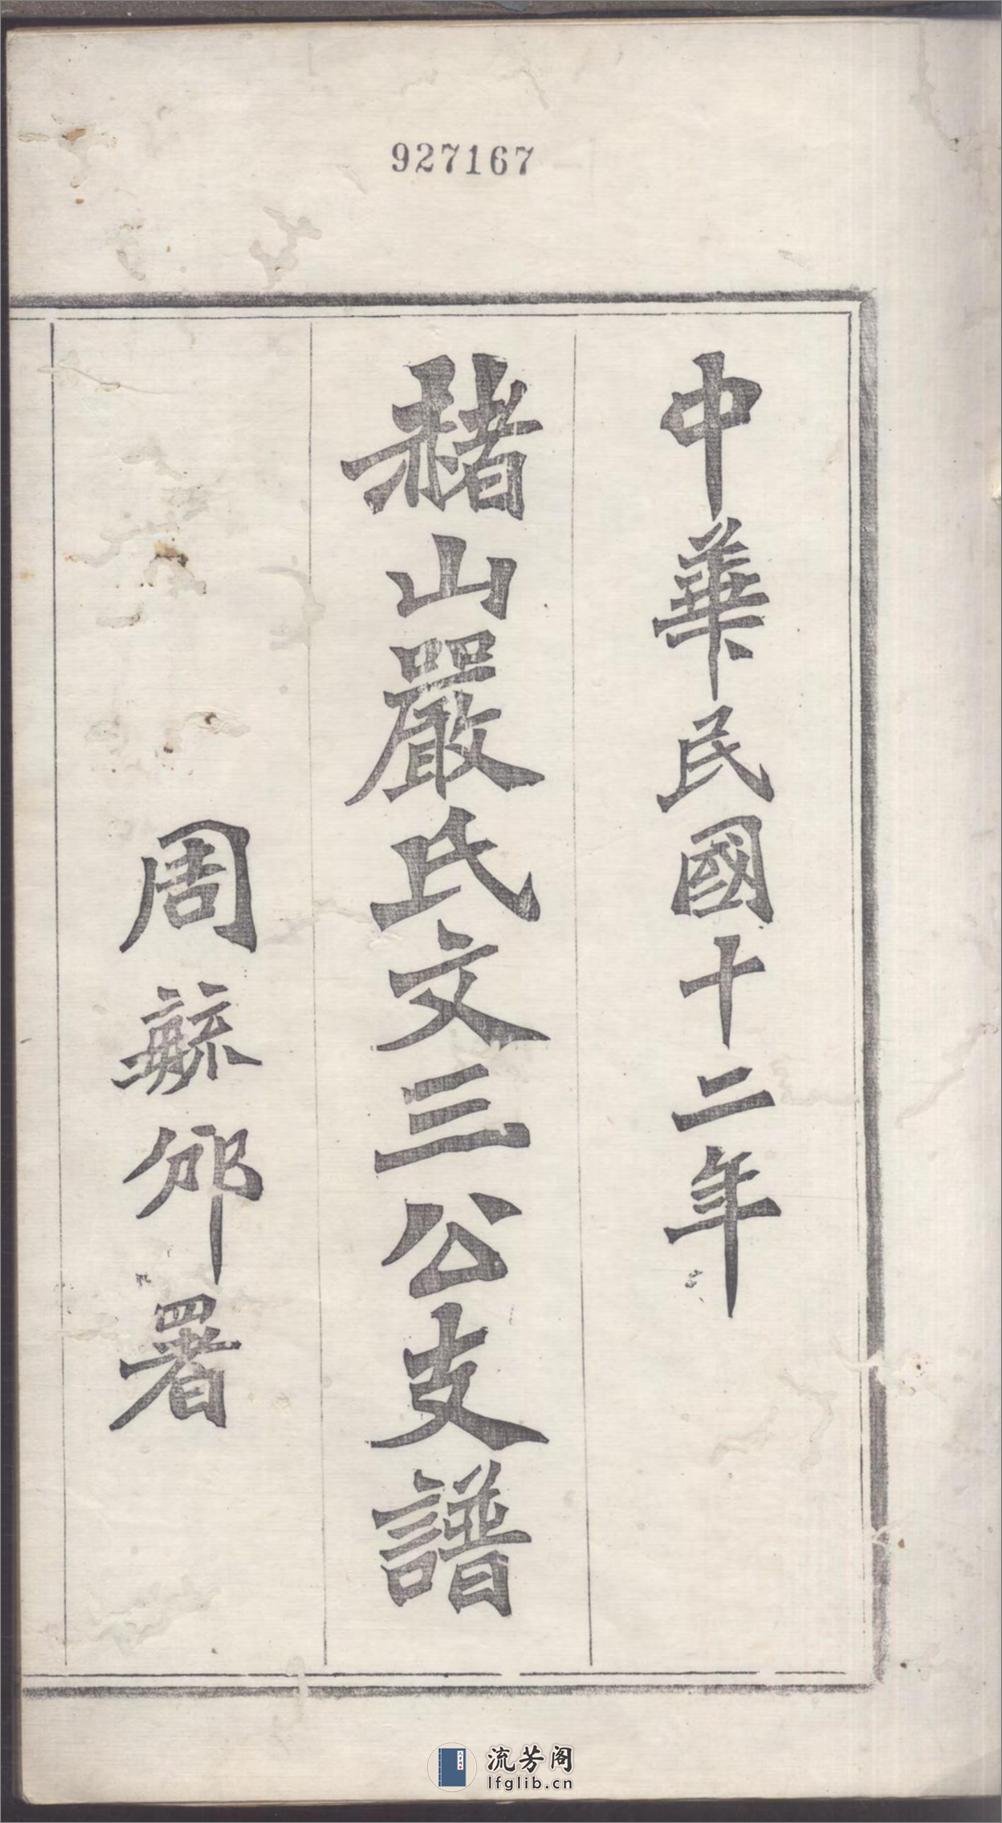 927167
中華民國十二年
赭山嚴氏文三公支譜
周毓邠署
流芳阁
lfglib.cn